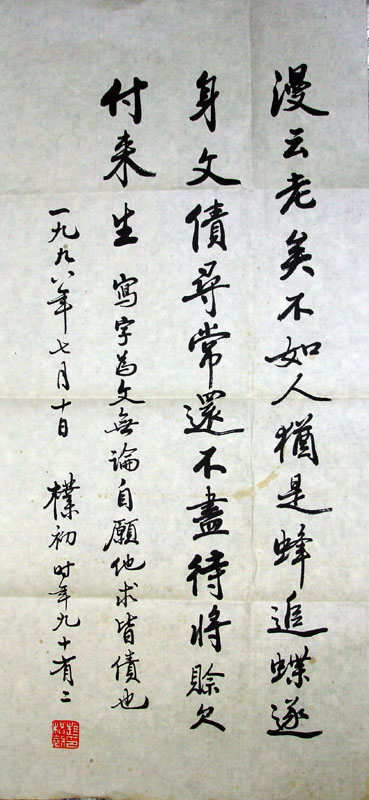 漫云老矣不如人猶是蜂追蝶逐
身文債尋常還不盡待將賒欠
付来生 寫字為文無論自願他求皆債也
一九九八年七月十日 樸初时年九十有二